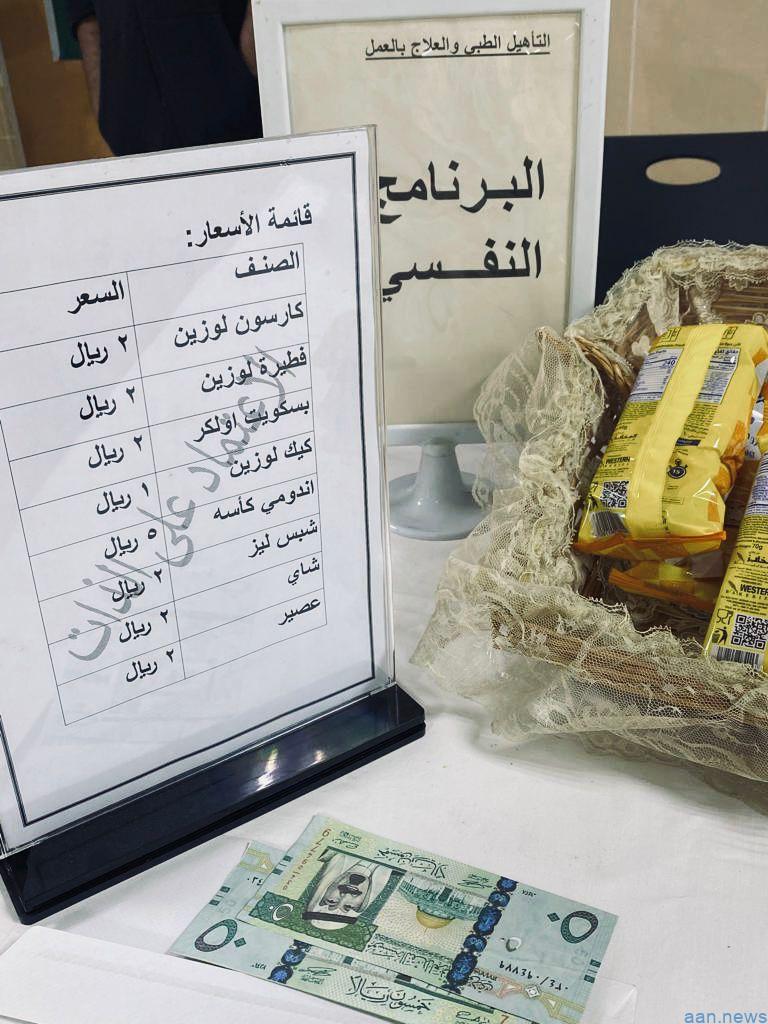 التأهيل الطبي والعلاج بالعمل
البرنامج
النفسي
قائمة الأسعار:
الصنف السعر
كارسون لوزين ٢ ريال
فطيرة لوزين ٢ ريال
بسكويت اولكر ٢ ريال
كيك لوزين ١ ريال
اندومي كأسه ٥ ريال
شبس ليز ٢ ريال
شاي ٢ ريال
عصير ٢ ريال
الاعتماد على الذات
WESTERN
WESTERN
٥٠
٥٠
خمسون ريالا
aan.news